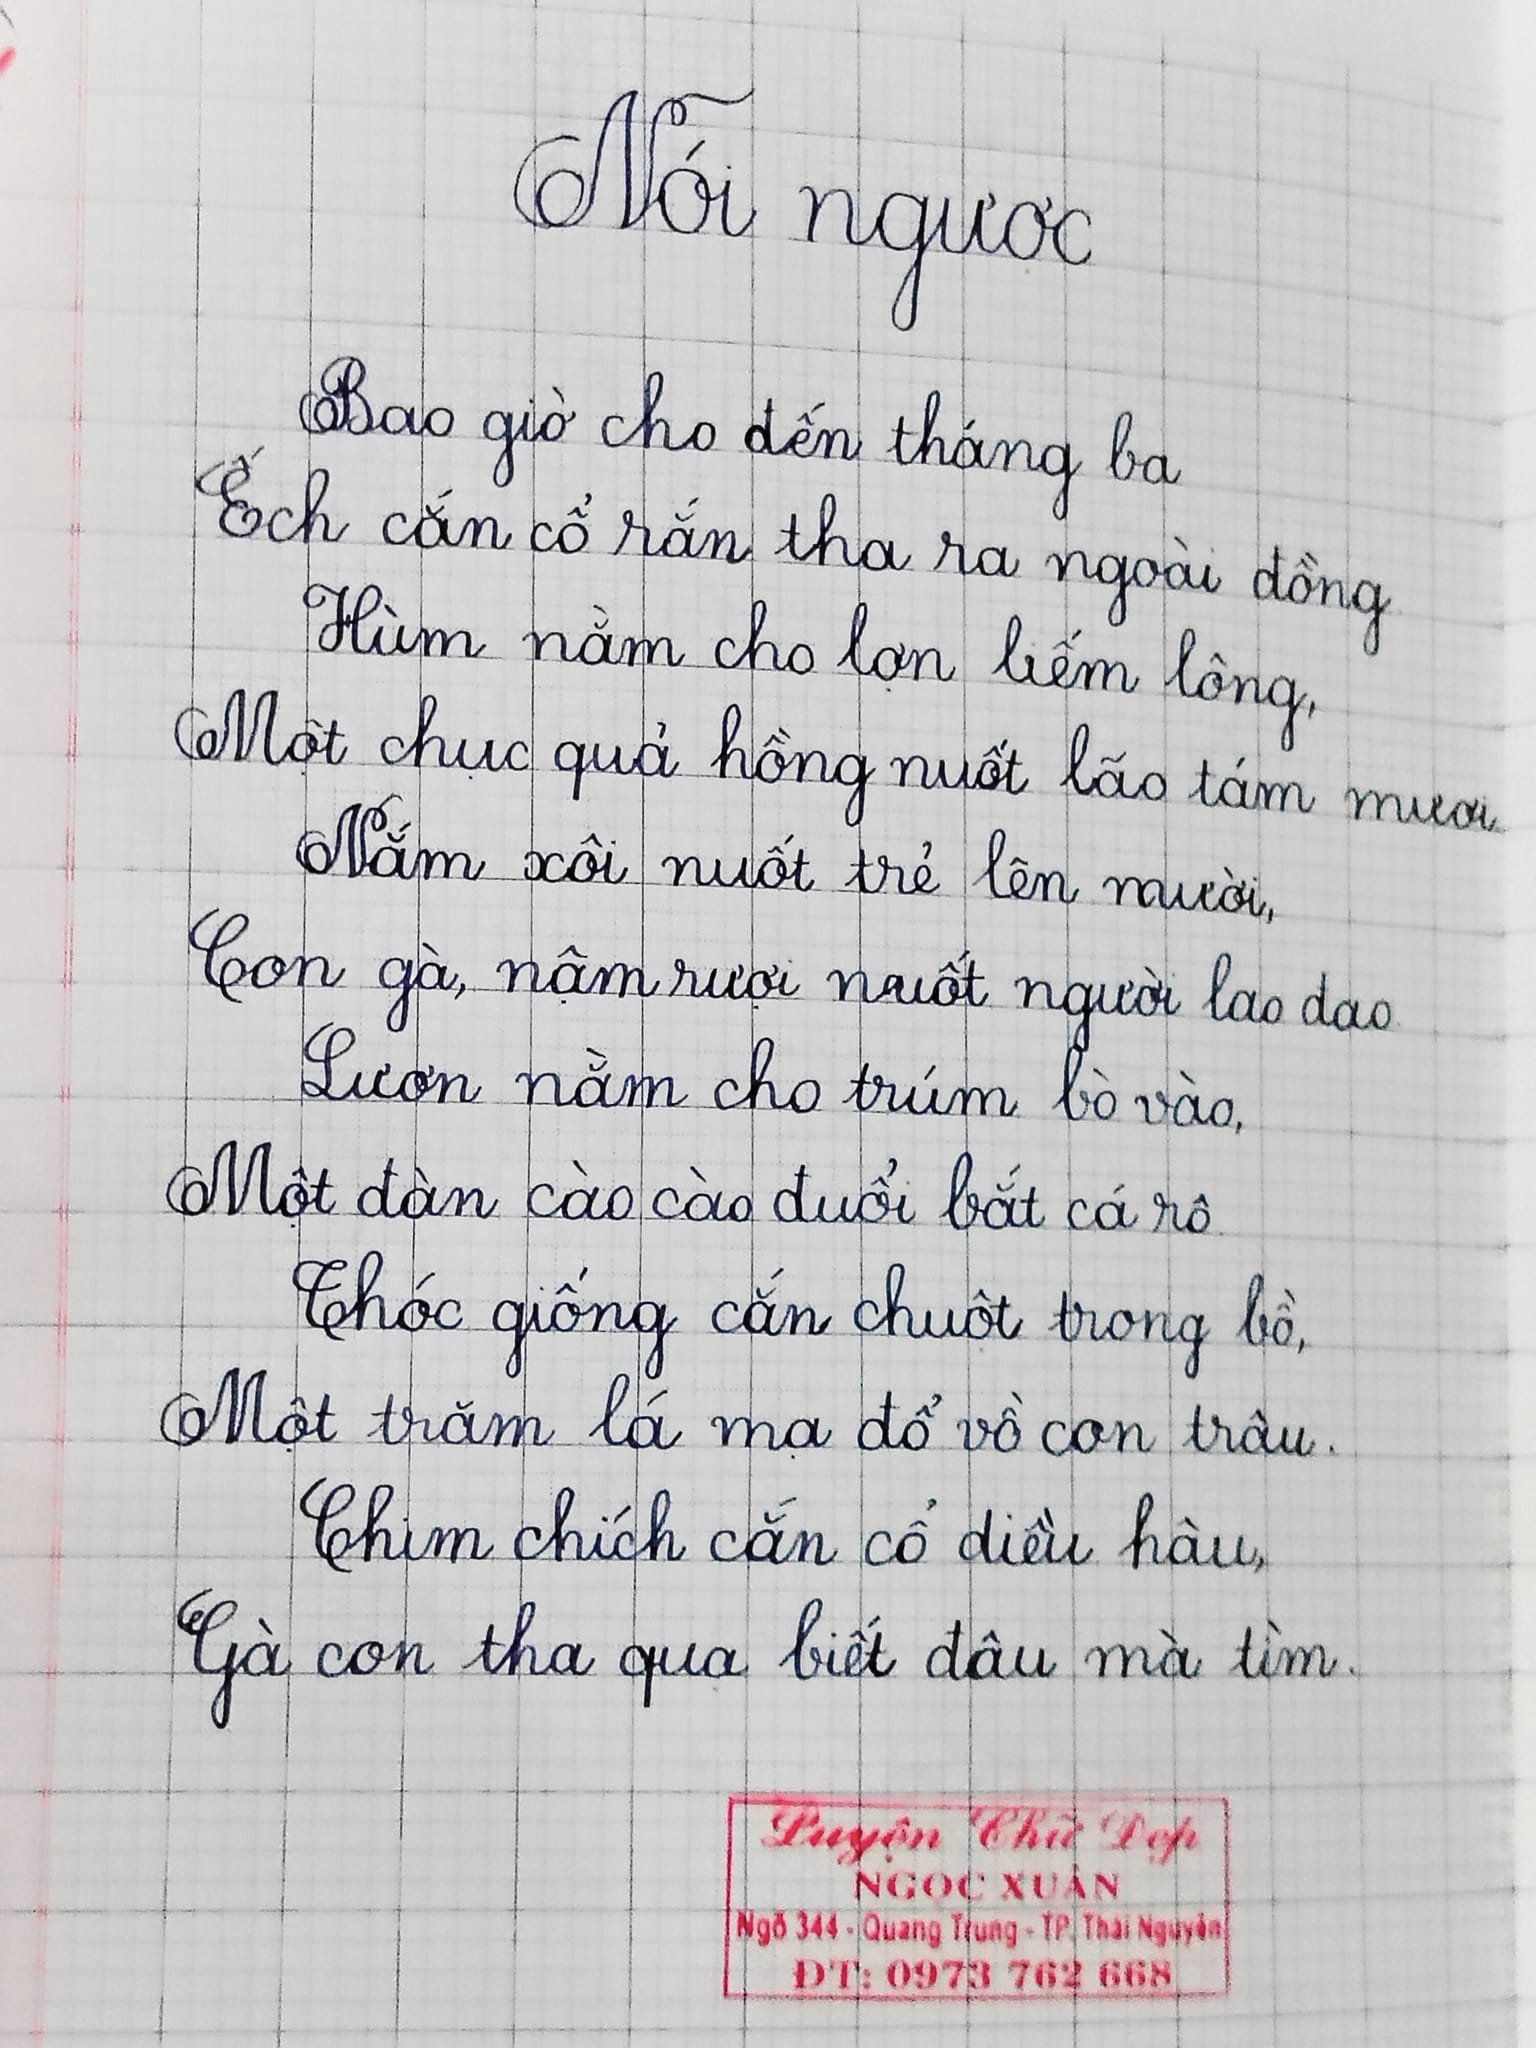 Nói ngươc
Bao giờ cho đến tháng ba
Ếch cắn cổ rắn tha ra ngoài đồng
Hùm nằm cho lợn liếm lông,
Một chục quả hồng nuốt lão tám mươi
Nắm xôi nuốt trẻ lên mười,
Con gà, nậm rượi nuốt người lao đao
Lươn nằm cho trúm bò vào,
Một đàn cào cào đuổi bắt cá rô
Thóc giống cắn chuột trong bồ,
Một trăm lá mạ đổ vồ con trâu.
Chim chích cắn cổ diều hâu,
Gà con tha quạ biết đâu mà tìm.
Luyện Chữ Đẹp
NGỌC XUÂN
Ngõ 344 - Quang Trung - TP. Thái Nguyên
ĐT: 0973 762 668